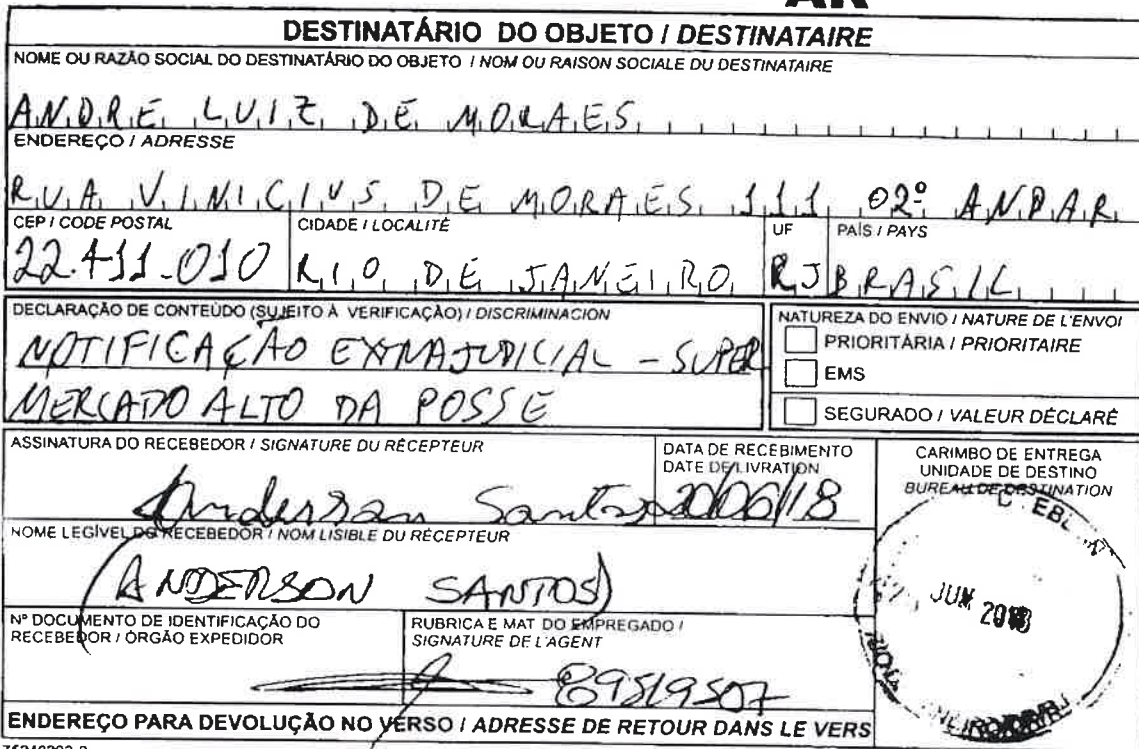 AR
DESTINATÁRIO DO OBJETO / DESTINATAIRE
NOME OU RAZÃO SOCIAL DO DESTINATÁRIO DO OBJETO / NOM OU RAISON SOCIALE DU DESTINATAIRE
ANDRE LUIZ DE MORAES
ENDEREÇO / ADRESSE
RUA VINICIUS DE MORAES 111 02º ANDAR
CEP / CODE POSTAL CIDADE / LOCALITÉ UF PAÍS / PAYS
22.411-010 RIO DE JANEIRO RJ BRASIL
DECLARAÇÃO DE CONTEÚDO (SUJEITO À VERIFICAÇÃO) / DISCRIMINACION
NOTIFICAÇÃO EXTRAJUDICIAL - SUPER
MERCADO ALTO DA POSSE
NATUREZA DO ENVIO / NATURE DE L'ENVOI
PRIORITÁRIA / PRIORITAIRE
EMS
SEGURADO / VALEUR DÉCLARÉ
ASSINATURA DO RECEBEDOR / SIGNATURE DU RÉCEPTEUR
Anderson Santos
DATA DE RECEBIMENTO
DATE DE LIVRATION
20/06/18
CARIMBO DE ENTREGA
UNIDADE DE DESTINO
BUREAU DE DESTINATION
JUN 2018
NOME LEGÍVEL DO RECEBEDOR / NOM LISIBLE DU RÉCEPTEUR
ANDERSON SANTOS
Nº DOCUMENTO DE IDENTIFICAÇÃO DO
RECEBEDOR / ÓRGÃO EXPEDIDOR
RUBRICA E MAT DO EMPREGADO /
SIGNATURE DE L'AGENT
89519507
ENDEREÇO PARA DEVOLUÇÃO NO VERSO / ADRESSE DE RETOUR DANS LE VERS